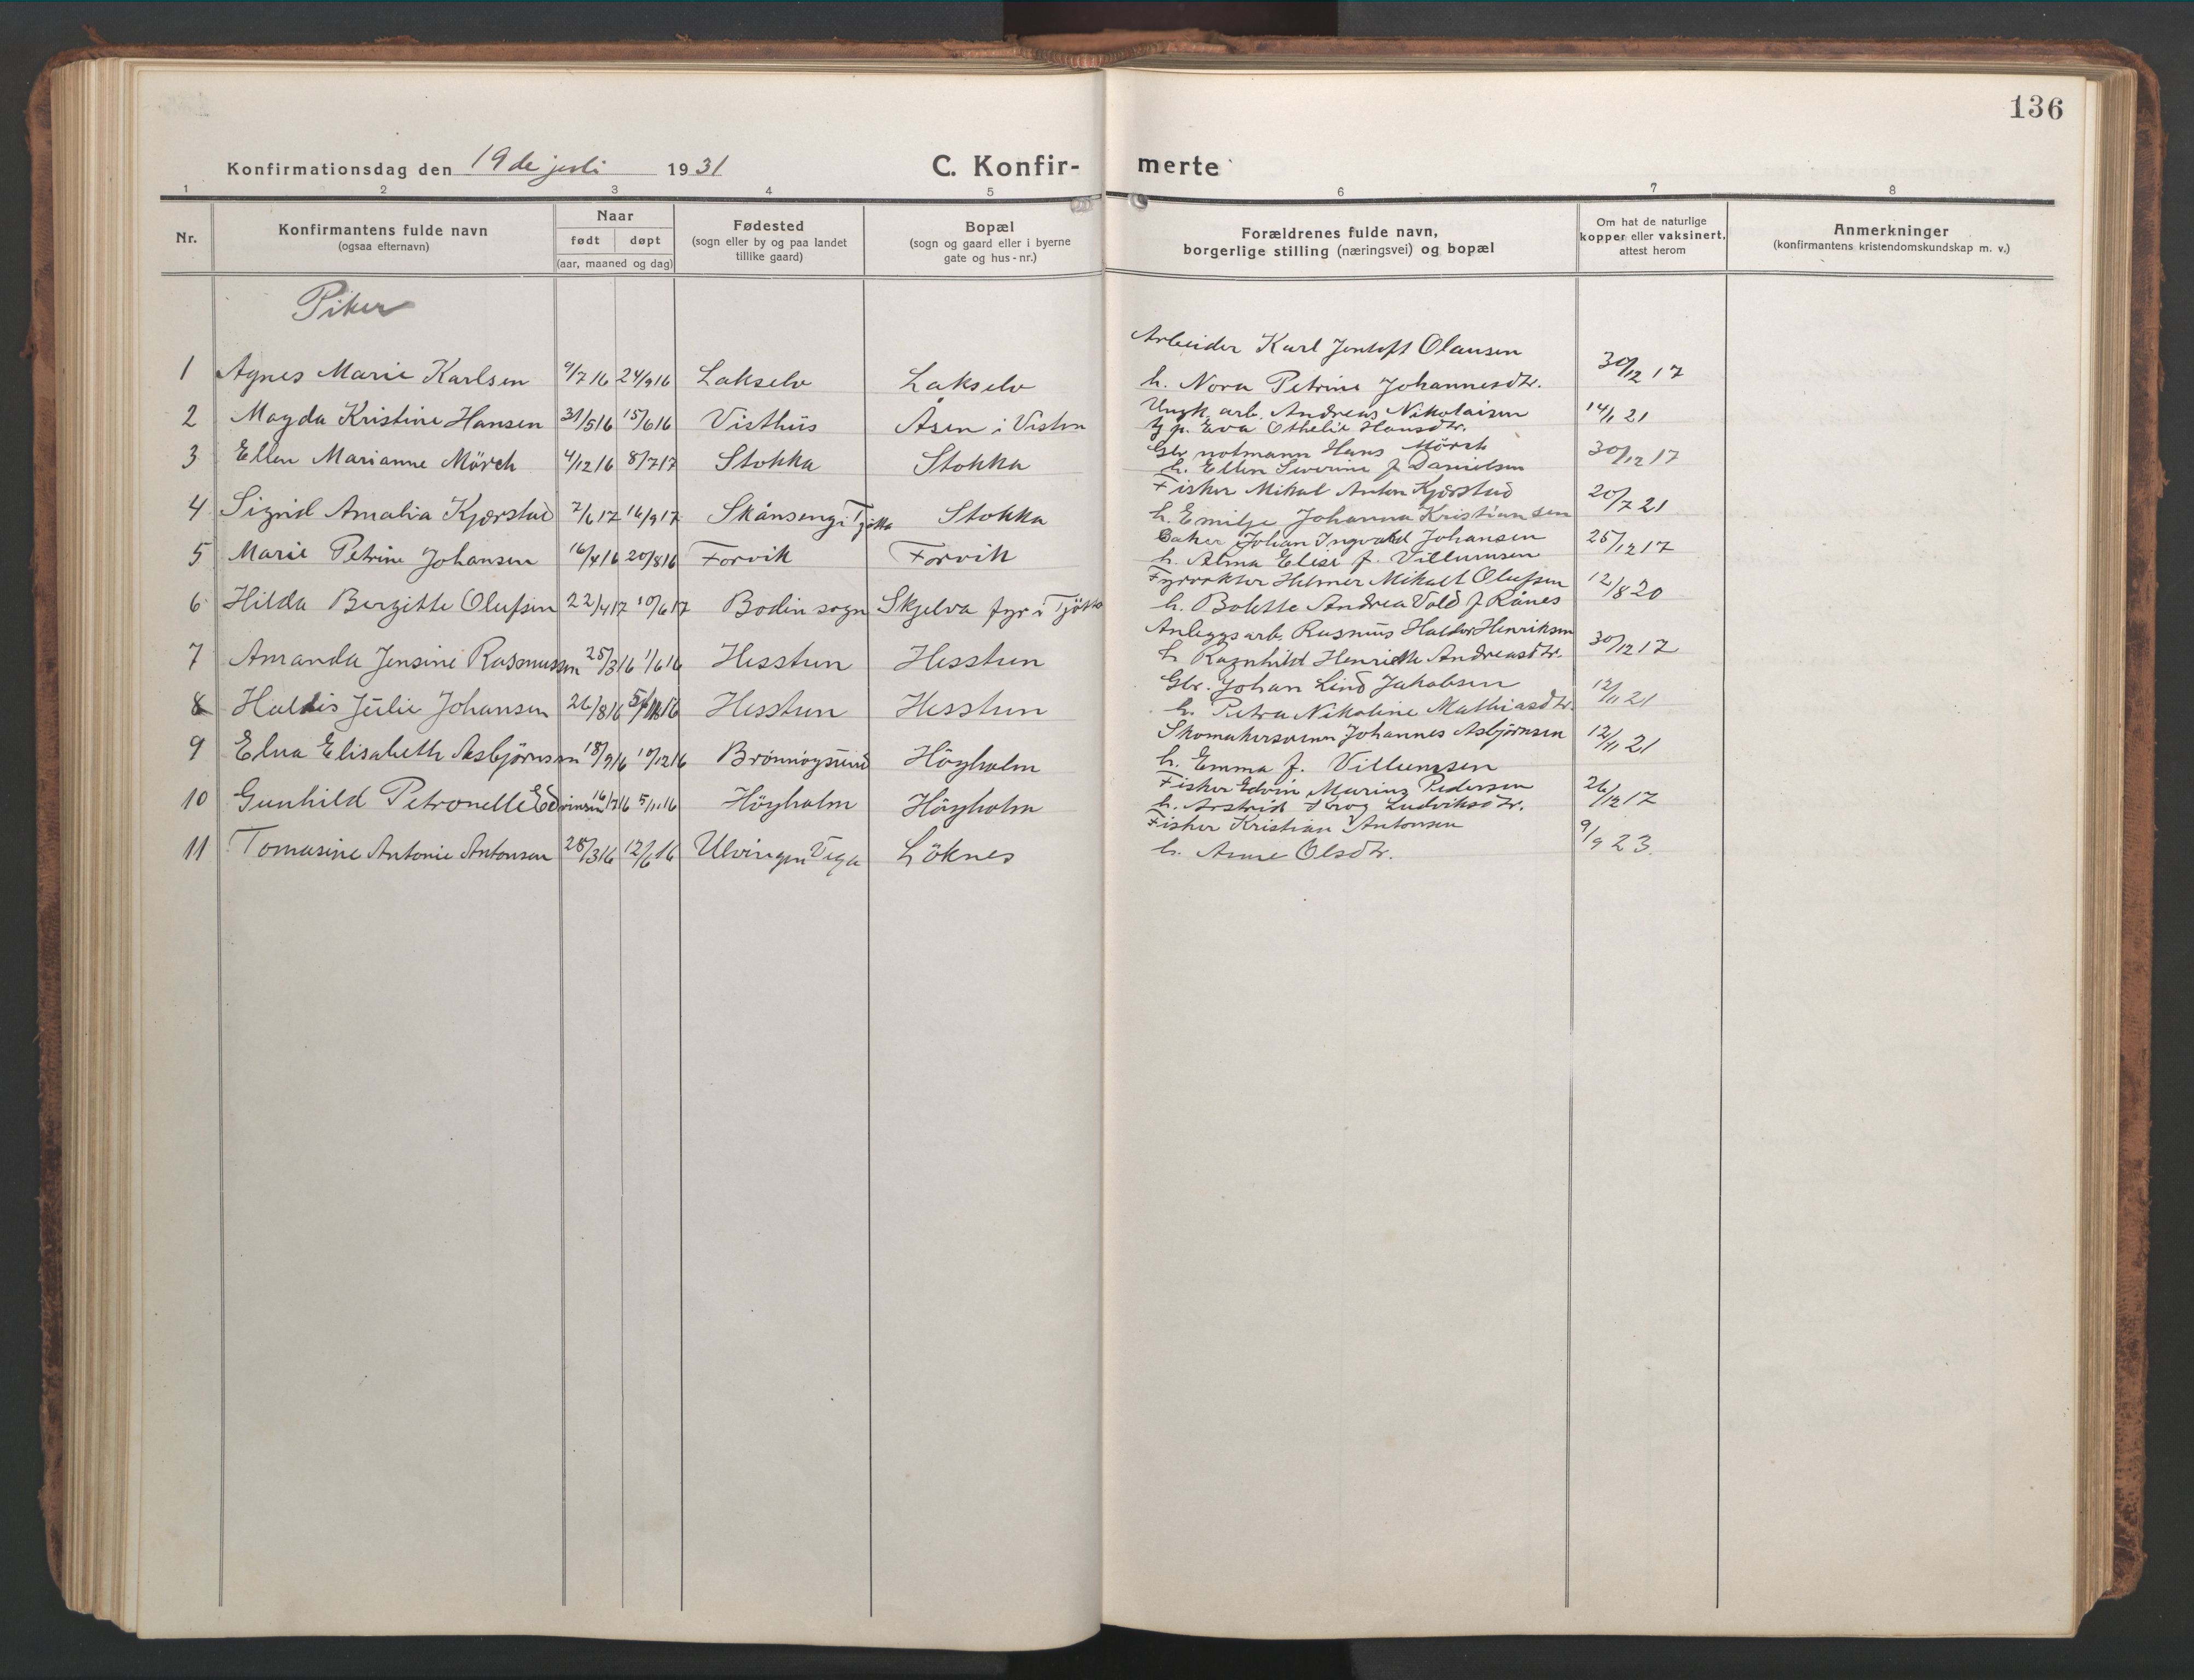 136
Konfirmationsdag den 19 de juli 1931
C. Konfir-merte
1 2 3 4 5 6 7 8
Nr.
Konfirmantens fulde navn
(ogsaa efternavn)
Naar
født døpt
(aar, maaned og dag)
Fødested
(sogn eller by og paa landet
tillike gaard)
Bopæl
(sogn og gaard eller i byerne
gate og hus-nr.)
Forældrenes fulde navn,
borgerlige stilling (næringsvei) og bopæl
Om hat de naturlige
kopper eller vaksinert,
attest herom
Anmerkninger
(konfirmantens kristendomskundskap m. v.)
Piker
Arbeider Karl Jentoft Olausen
1 Agnes Marie Karlsen 9/7 16 24/9 16 Lakselv Lakselv h. Nora Petrine Johannesdtr. 30/12 17
Ungk. arb. Andreas Nikolaisen
2 Magda Kristine Hansen 31/5 16 15/6 16 Visthus Åsen i Visten g p. Eva Othelie Hansdtr. 14/1 21
Gbr notmann Hans Mörch
3 Ellen Marianne Mörch 4/12 16 8/7 17 Stokka Stokka h. Ellen Severine f Danielsen 30/12 17
Fisker Mikal Anton Kjærstad
4 Signil Amalia Kjærstad 7/6 17 16/9 17 Skånseng i Tjøtta Stokka h. Emilje Johanna Kristiansen 20/7 21
Baker Johan Ingvald Johansen
5 Marie Petrine Johansen 16/4 16 20/8 16 Forvik Forvik h. Alma Elise f. Villumsen 25/12 17
Fyrvokter Helmer Mikall Olufsen
6 Hilda Bergitte Olufsen 22/4 17 10/6 17 Bodin sogn Skjelva fyr i Tjötta h. Bolette Andrea Vold f Rånes 12/8 20
Anleggsarb. Rasmus Haldor Henriksen
7 Amanda Jensine Rasmussen 25/3 16 1/6 16 Hesstun Hesstun h Ragnhild Henriette Andreasdtr. 30/12 17
Gbr. Johan Lind Jakobsen
8 Haldis Julie Johansen 26/8 16 5/11 16 Hesstun Hesstun h. Petra Nikoline Mathiasdtr. 12/11 21
Skomakersvenn Johannes Asbjörnsen
9 Elna Elisabeth Asbjörnsen 18/9 16 10/12 16 Brönnöysund Höyholm h. Emma f. Villumsen 12/11 21
Fisker Edvin Marius Pedersen
10 Gunhild Petronelle Edvinsen 16/7 16 5/11 16 Höyholm Höyholm h. Arstrid Krog Ludviksdtr. 26/12 17
Fisker Kristian Antonsen
11 Tomasine Antonie Antonsen 28/3 16 12/6 16 Ulvingen Vega Löknes h. Anne Olsdtr. 9/9 23.